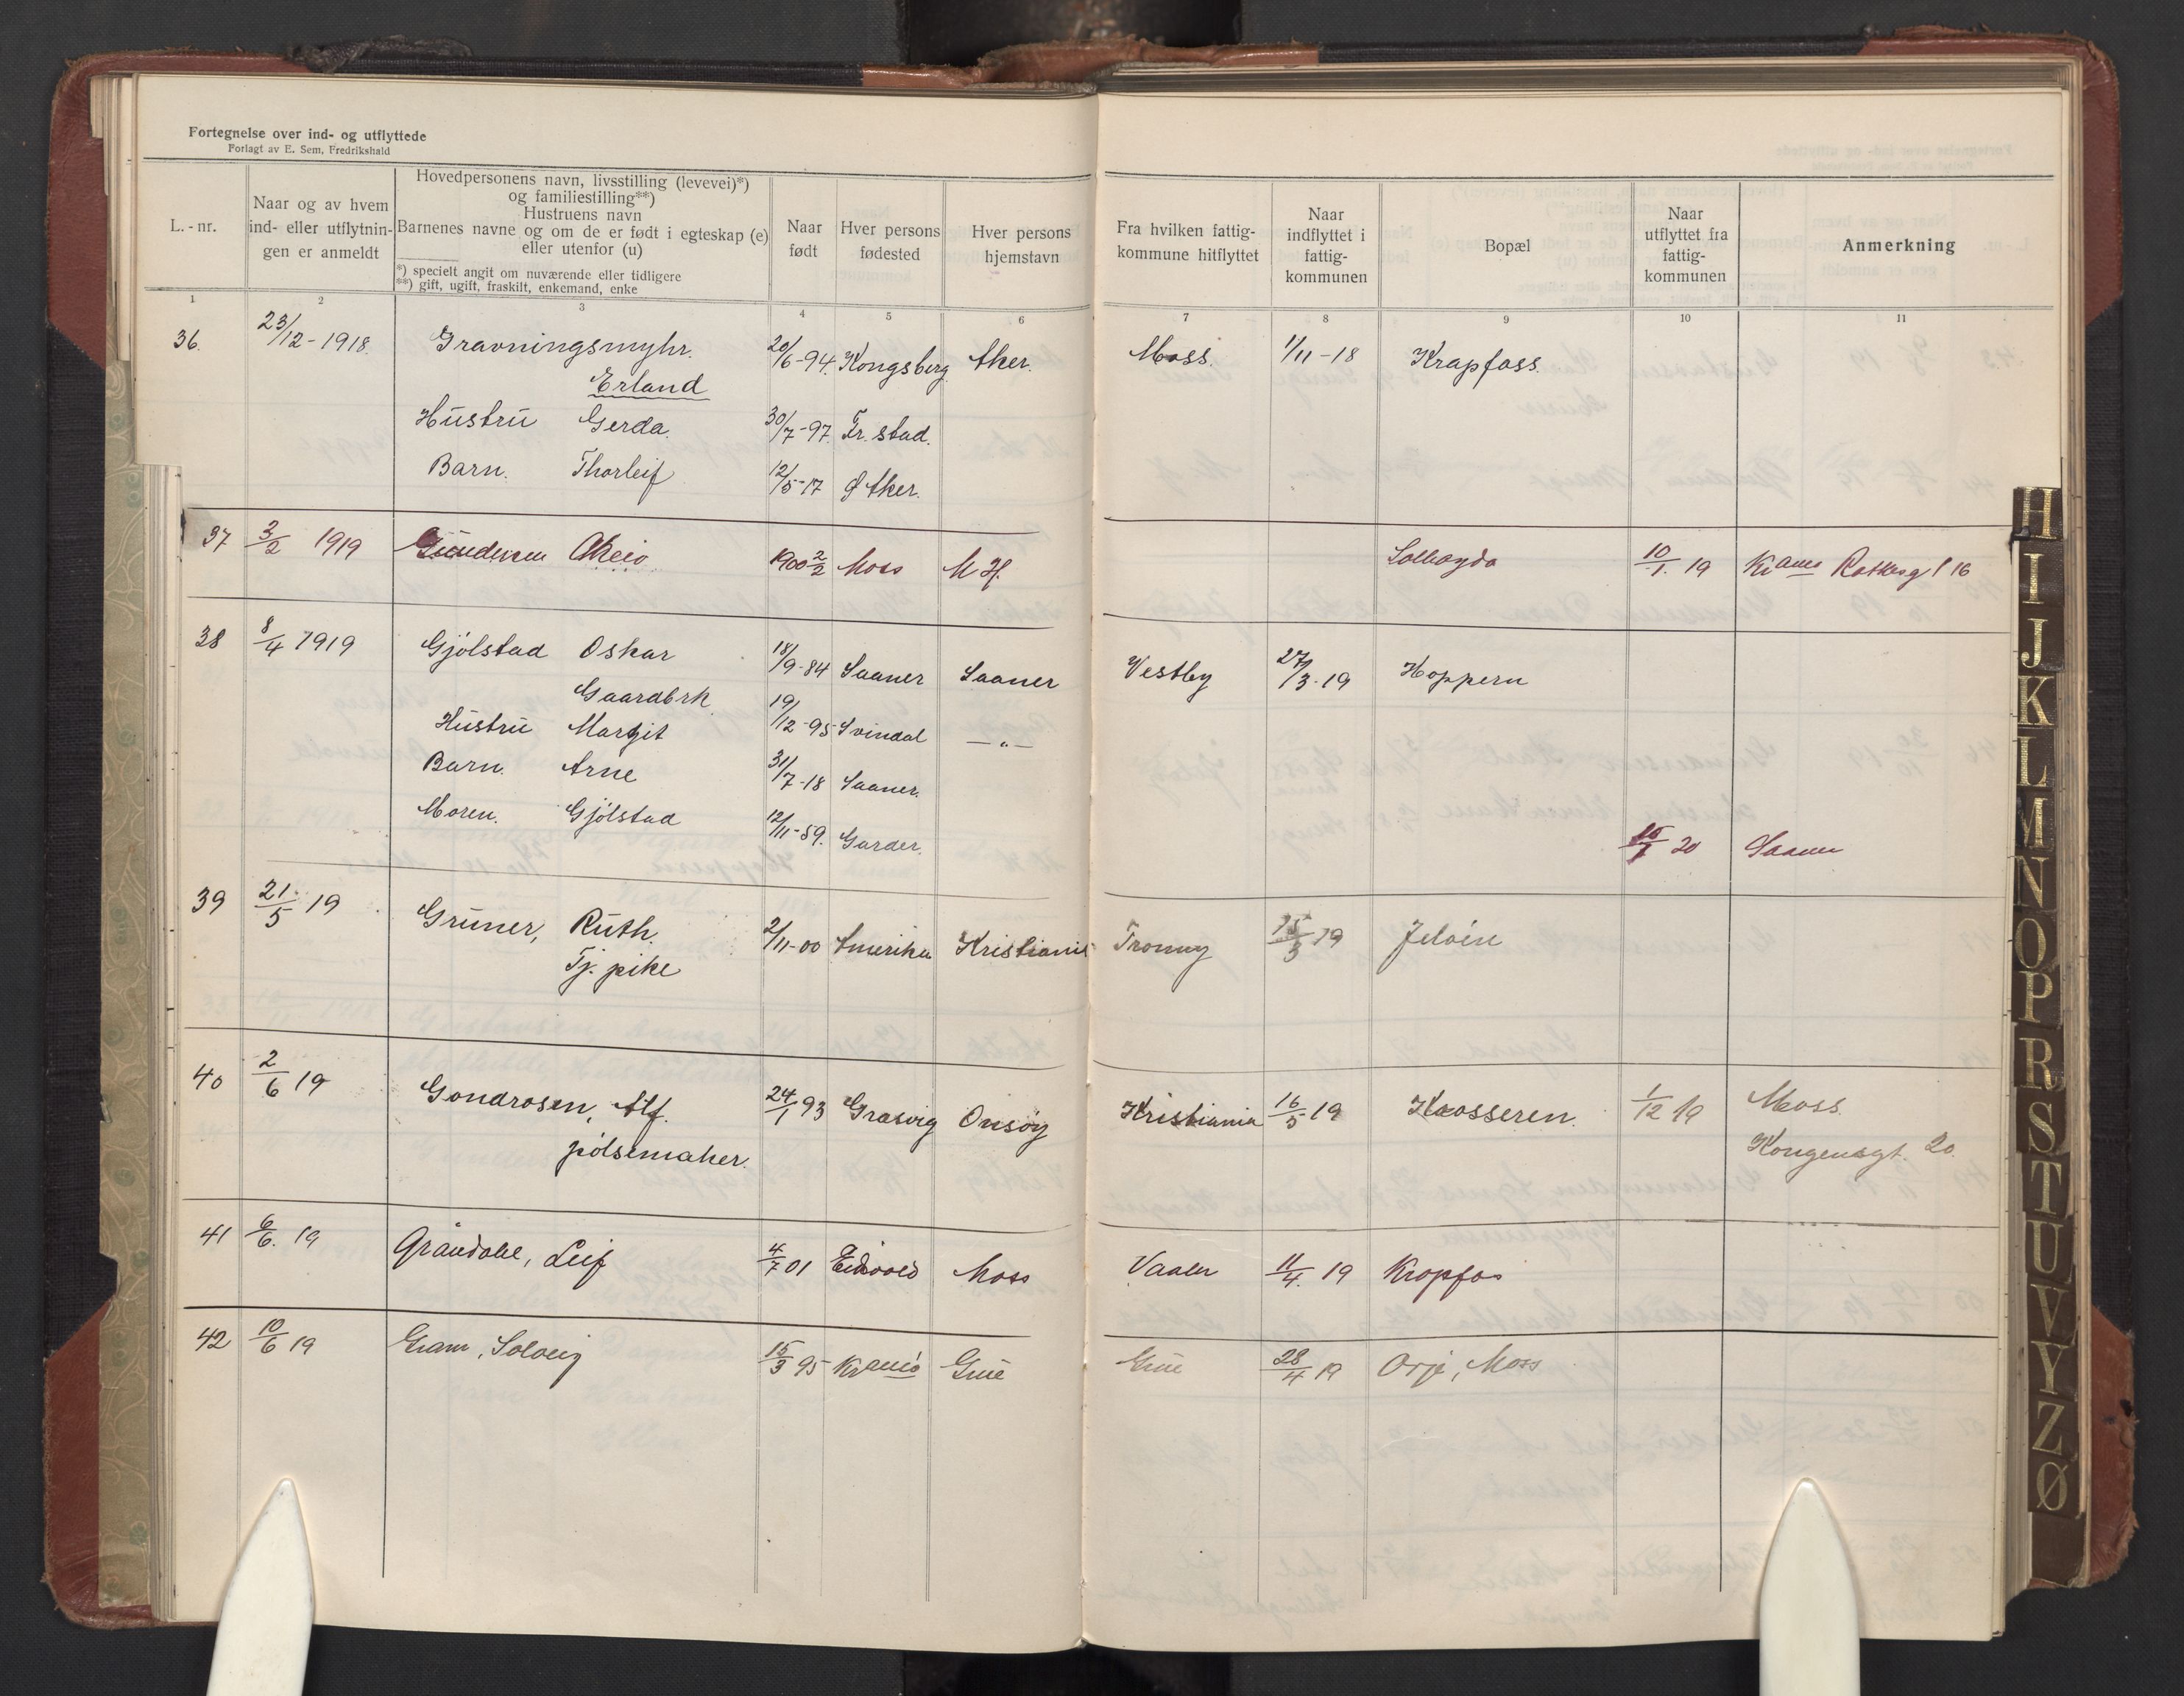 Fortegnelse over ind- og utflyttede
Forlagt av E. Sem, Fredrikshald
L.-nr.
Naar og av hvem
ind- eller utflytnin-
gen er anmeldt
Hovedpersonens navn, livsstilling (levevei)*)
og familiestilling**)
Hustruens navn
Barnenes navne og om de er født i egteskap (e)
eller utenfor (u)
*) specielt angit om nuværende eller tidligere
**) gift, ugift, fraskilt, enkemand, enke
Naar
født
Hver persons
fødested
Hver persons
hjemstavn
Fra hvilken fattig-
kommune hitflyttet
Naar
indflyttet i
fattig-
kommunen
Bopæl
Naar
utflyttet fra
fattig-
kommunen
Anmerkning
1 2 3 4 5 6 7 8 9 10 11
36. 23/12-1918. Gravningsmyhr. 20/6-94. Kongsberg Aker. Moss. 1/11-18 Krapfoss.
Erland
Hustru Gerda. 30/7-97. Fr.stad.
Barn. Thorleif 12/5-17 Ø Aker.
37 3/2 1919 Gundersen 1900 2/2 Moss M H. 10/1. 19 16
38 8/4 1919 Gjölstad Oskar 18/9-84 Saaner Saaner Vestby 27/3-19 Hoppern
Gaardbrk.
Hustru Margit 19/12-95 Svindal —"—
Barn. Arne 31/7-18 Saaner.
Moren. Gjölstad 12/11-59. Garder. 20 Saaner
39 21/5 19 Grüner, Ruth. 2/11-00 Amerika Kristiania Tromøy 15/3 19 Jelöen
Tj. pike
40 2/6 19 Gondrosen, Alf. 24/1 93 Græsvig Onsöy Kristiania 16/5 19 Krosseren. 1/12 19 Moss.
pölsemaker. Kongensgt. 20.
41 6/6. 19 Grändahl, Leif 4/7 01 Eidsvold Moss Vaaler 11/4. 19 Kropfos
42 10/6 19 Gram, Solveig 15/3 95 Krania Grue Grue 28/4 19 Orje, Moss
H
I
J
K
L
M
N
O
P
R
S
T
U
V
Y
Z
Ø